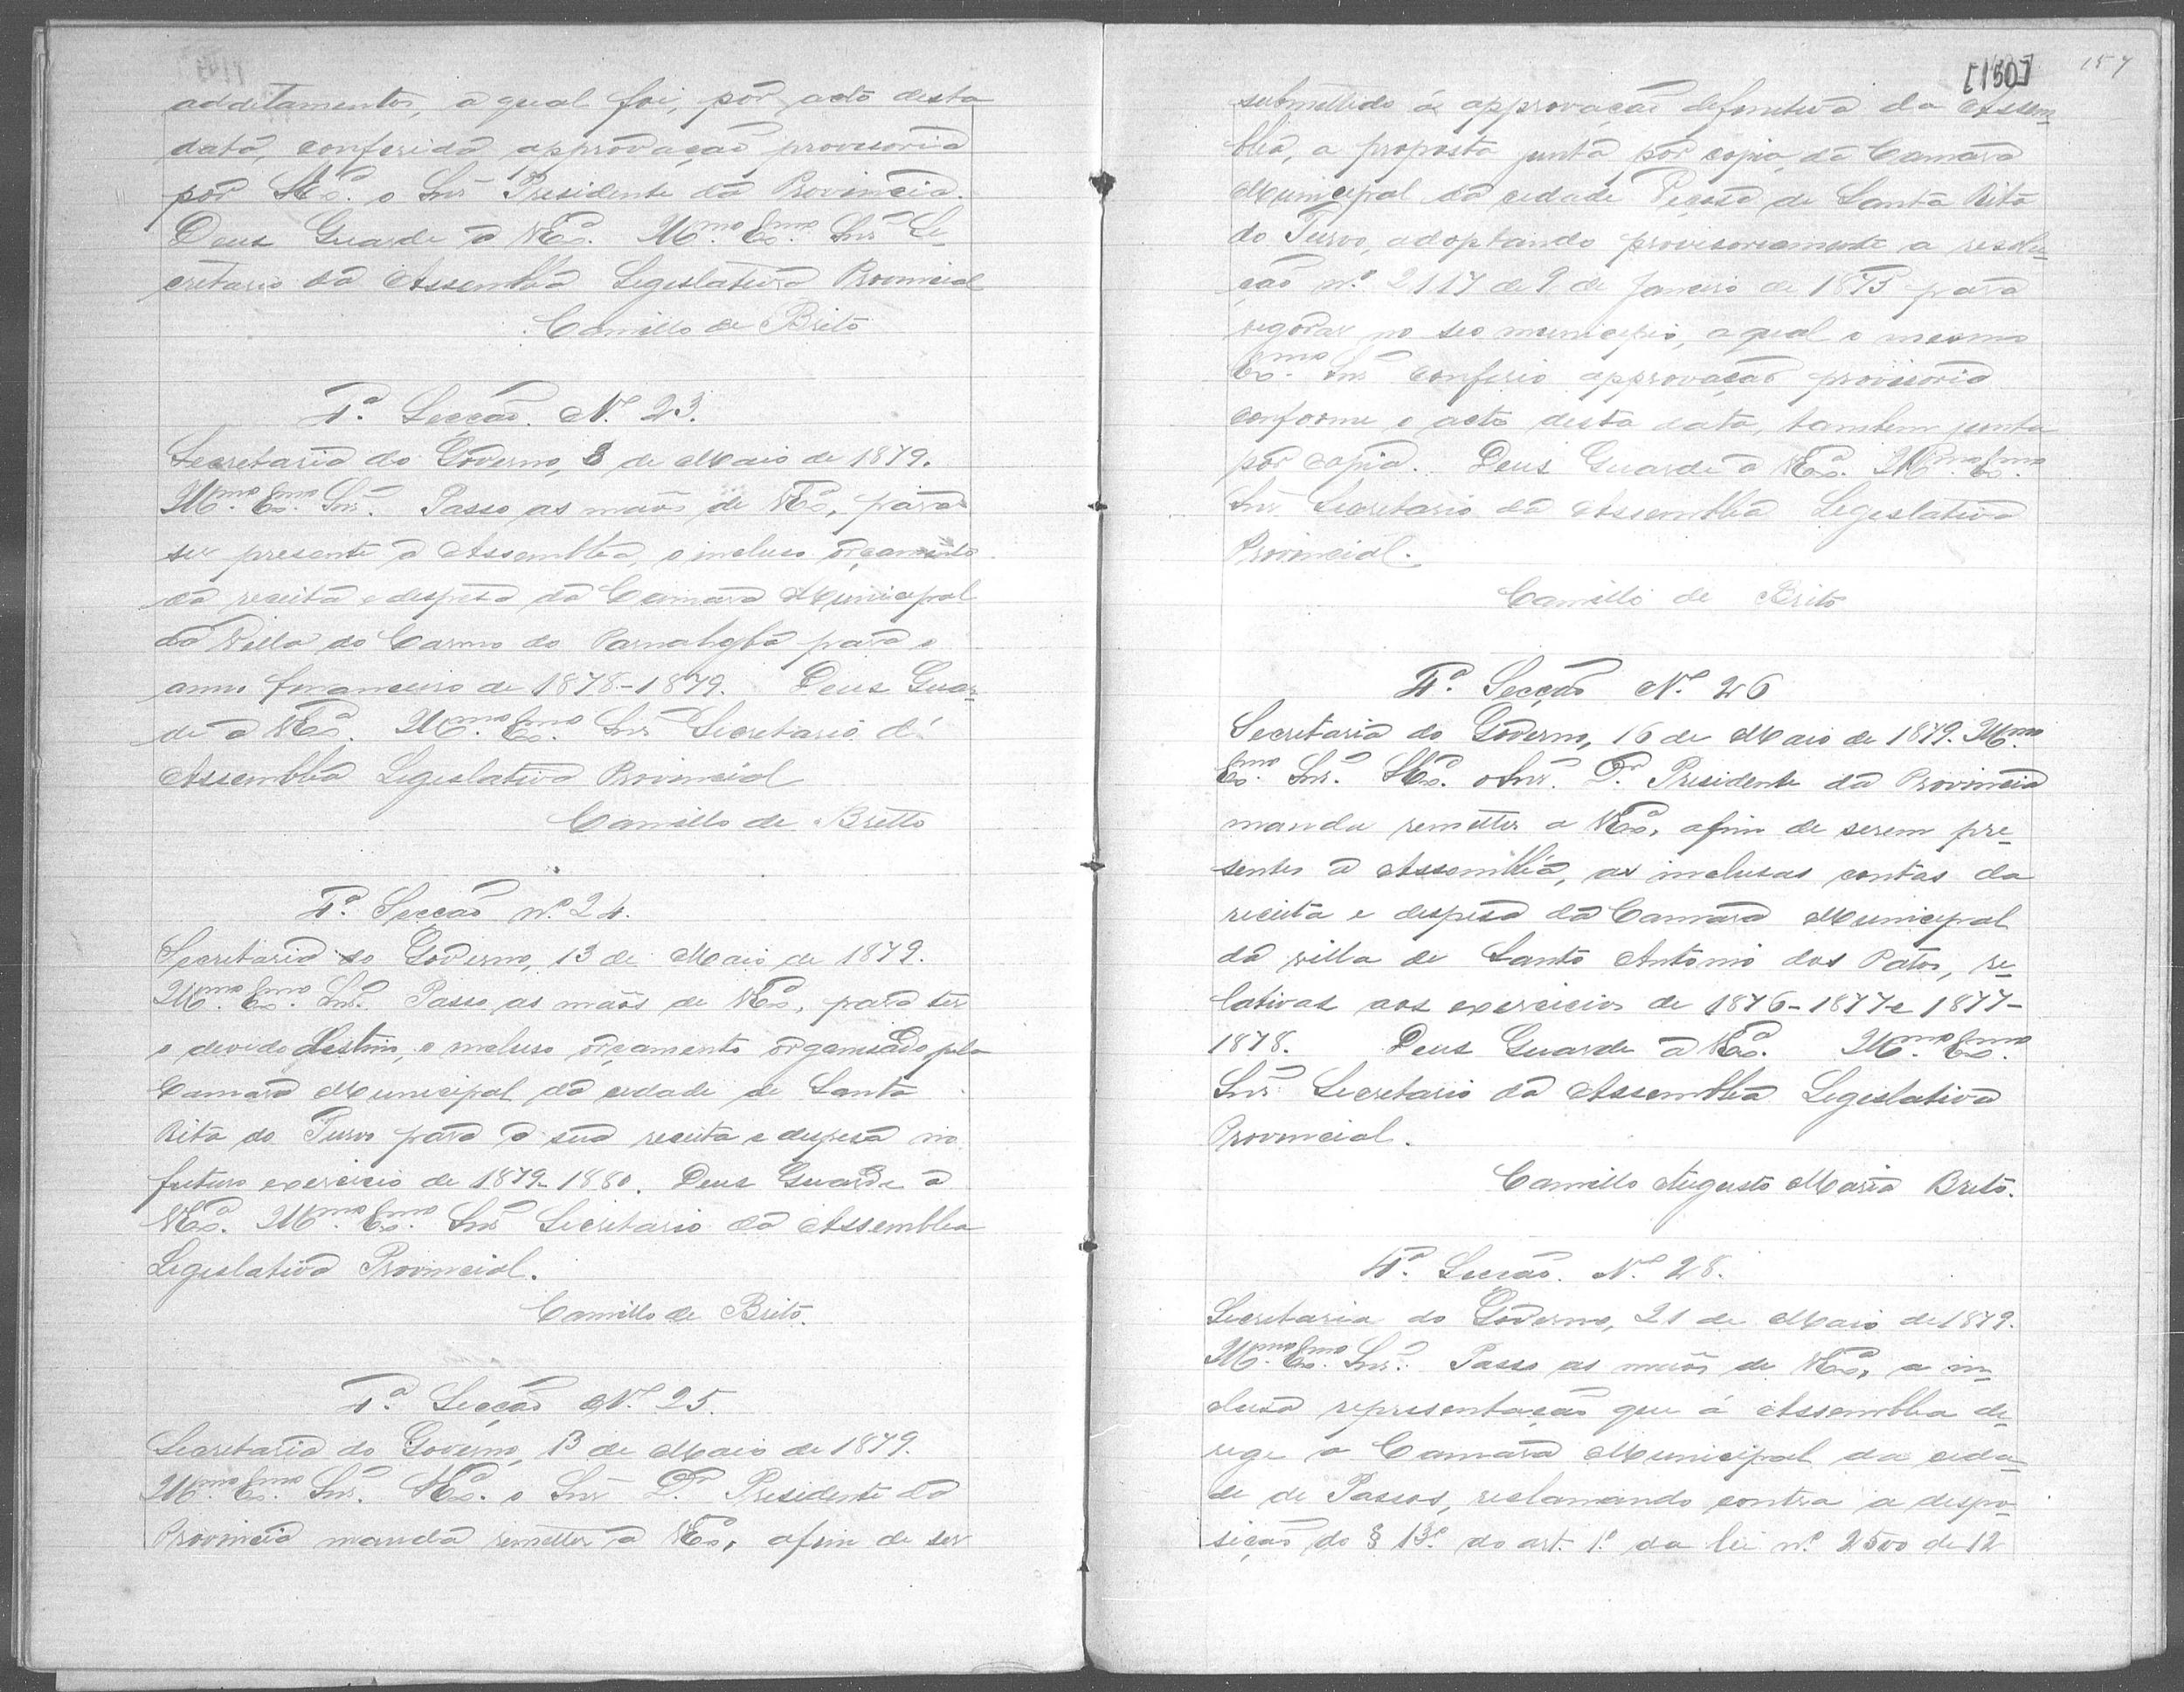 additamentos, a qual foi, por acto desta
data, conferida approvação provisoria
por S. Exª. o Snr Presidente da Provincia.
Deus Guarde a V. Exª. Illmo. Exmo. Snr Se-
cretario da Assembléa Legislativa Provincial
Camillo de Brito
4ª. Secção. Nº. 23.
Secretaria do Governo, 8 de Maio de 1879.
Illmo. Exmo. Snr. Passo as mãos de V. Exª, para
ser presente a Assembléa, o incluso orçamento
da receita e despesa da Camara Municipal
da Villa do Carmo do Parnahyba para o
anno financeiro de 1878-1879. Deus Guar-
de a V. Exª. Illmo. Exmo. Snr Secretario d'
Assembléa Legislativa Provincial
Camillo de Britto
4ª. Secção nº. 24.
Secretaria do Governo, 13 de Maio de 1879.
Illmo. Exmo. Snr. Passo as mãos de V. Exª, para ter
o devido destino, o incluso orçamento organisado pela
Camara Municipal da cidade de Santa
Rita do Turvo para a sua receita e despesa no
futuro exercicio de 1879-1880. Deus Guarde a
V. Exª. Illmo. Exmo. Snr Secretario da Assemblea
Legislativa Provincial.
Camillo de Brito.
4ª. Secção Nº. 25.
Secretaria do Governo, 13 de Maio de 1879.
Illmo. Exmo. Snr. S. Exª. o Snr Dr. Presidente da
Provincia manda remetter a V. Exª, afim de ser
[150] 157
submettido á approvação definitiva da Assem-
bléa, a proposta junta por copia, da Camara
Municipal da cidade de Santa Rita
do Turvo, adoptando provisoriamente a resolu-
ção nº. 2117 de 9 de Janeiro de 1875 para
vigorar no seo municipio, a qual o mesmo
Exmo. Snr conferio approvação provisoria
conforme o acto desta data, tambem junto
por copia. Deus Guarde a V. Exª. Illmo. Exmo.
Snr Secretario da Assembléa Legislativa
Provincial.
Camillo de Brito
4ª. Secção Nº. 26
Secretaria do Governo, 16 de Maio de 1879. Illmo.
Exmo. Snr. S. Exª. o Snr. Dr. Presidente da Provincia
manda remetter a V. Exª, afim de serem pre-
sentes a Assembléa, as inclusas contas da
receita e despesa da Camara Municipal
da villa de Santo Antonio dos Patos, re-
lativas aos exercicios de 1876-1877 e 1877-
1878. Deus Guarde a V. Exª. Illmo. Exmo.
Snr Secretario da Assembléa Legislativa
Provincial.
Camillo Augusto Maria Brito.
4ª. Secção. Nº. 28.
Secretaria do Governo, 21 de Maio de 1879.
Illmo. Exmo. Snr. Passo as mãos de V. Exª, a in-
clusa representação que á Assemblea de-
rege a Camara Municipal da cida-
de de Passos, reclamando contra a dispo-
sição do § 13º. do art. 1º. da lei nº. 2500 de 12